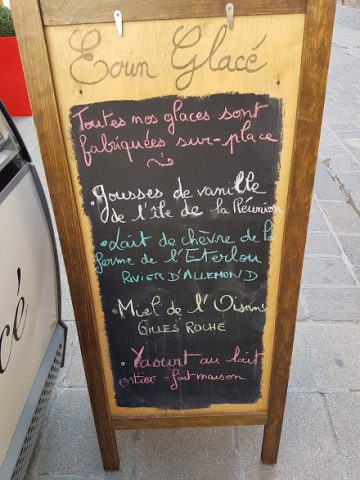 Ecrin Glacé
Toutes nos glaces sont
fabriquées sur-place
• gousses de vanille
de l'île de la Réunion
• Lait de chèvre de la
ferme de l'Eterlou
RIVIER D'ALLEMOND
• Miel de l'Oisans
GILLES ROCHE
• Yaourt au lait
entier - fait maison
cé